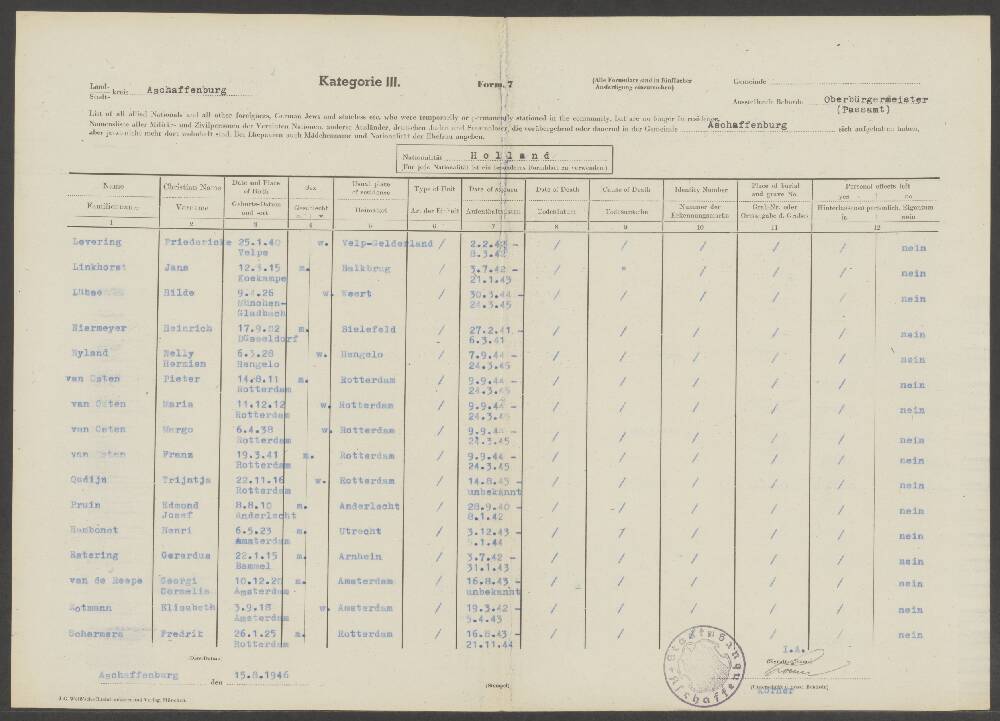 Kategorie III.
Form. 7
(Alle Formulare sind in fünffacher
Ausfertigung einzureichen)
Gemeinde
Land-
Stadt- kreis Aschaffenburg
Ausstellende Behörde Oberbürgermeister
(Passamt)
List of all allied Nationals and all other foreigners, German Jews and stateless etc. who were temporarily or permanently stationed in the community, but are no longer in residence.
Namensliste aller Militär- und Zivilpersonen der Vereinten Nationen, anderer Ausländer, deutschen Juden und Staatenloser, die vorübergehend oder dauernd in der Gemeinde Aschaffenburg sich aufgehalten haben,
aber jetzt nicht mehr dort wohnhaft sind. Bei Ehepaaren auch Mädchenname und Nationalität der Ehefrau angeben.
Nationalität Holland
(Für jede Nationalität ist ein besonderes Formblatt zu verwenden)
Name Christian Name Date and Place of Birth Sex Usual place of residence Type of Unit Date of Date of Death Cause of Death Identity Number Place of burial and grave No. Personal effects left yes no
Familienname Vorname Geburts-Datum und -ort Geschlecht m. w. Heimatort Art der Einheit Aufenthaltsdatum Todesdatum Todesursache Nummer der Erkennungsmarke Grab-Nr. oder Ortsangabe d. Grabes Hinterlassenes persönlich. Eigentum ja nein
1 2 3 4 5 6 7 8 9 10 11 12
Levering Friedericke 25.1.40 w. Velp-Gelderland / / / / / / nein
Velpe 8.3.42
Linkhorst Jans m. Balkbrug / 3.7.42 - / " / / / nein
Koekampe 21.1.43
Hilde w. Weert / 30.3.44 - / / / / / nein
München- 24.3.45
Gladbach
Niermeyer Heinrich 17.9.82 m. Bielefeld / 27.2.41 - / / / / / nein
Düsseldorf 6.3.41
Nyland Nelly w. Hengelo / 7.9.44 - / / / / / nein
Hermien Hengelo 24.3.45
van Osten Pieter 14.8.11 m. Rotterdam / 9.9.44 - / / / / / nein
Rotterdam 24.3.45
van Osten Maria 11.12.12 w. Rotterdam / 9.9.44 - / / / / / nein
Rotterdam 24.3.45
van Osten Margo 6.4.38 w. Rotterdam / / / / / / nein
Rotterdam 24.3.45
van Osten Franz 19.3.41 m. Rotterdam / 9.9.44 - / / / / / nein
Rotterdam 24.3.45
Qudijn Trijntja 22.11.16 w. Rotterdam / 14.8.43 - / / / / / nein
Rotterdam unbekannt
Pruin Edmond 8.8.10 m. Anderlecht / 28.9.40 - / / / / / nein
Josef Anderlecht 8.1.42
Rembonet Henri 6.5.23 m. Utrecht / 3.12.43 - / / / / / nein
Amsterdam
Ratering Gerardus 22.1.15 m. Arnhein / 3.7.42 - / / / / / nein
Bemmel 31.1.43
van de Reepe Georgi m. Amsterdam / 16.8.43 - / / / / / nein
Cornelis Amsterdam unbekannt
Rotmann Elisabeth 3.9.18 w. Amsterdam / 19.3.42 - / / / / / nein
Amsterdam 5.4.43
Schermers Fredrik 26.1.25 m. Rotterdam / 16.8.43 - / / / / / nein
Rotterdam 21.11.44
(Ort - Datum)
I.A.
Aschaffenburg den 15.8.1946
(Stempel)
Körner